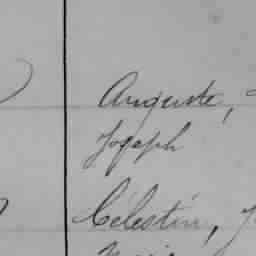 Auguste,
Joseph
Célestin,